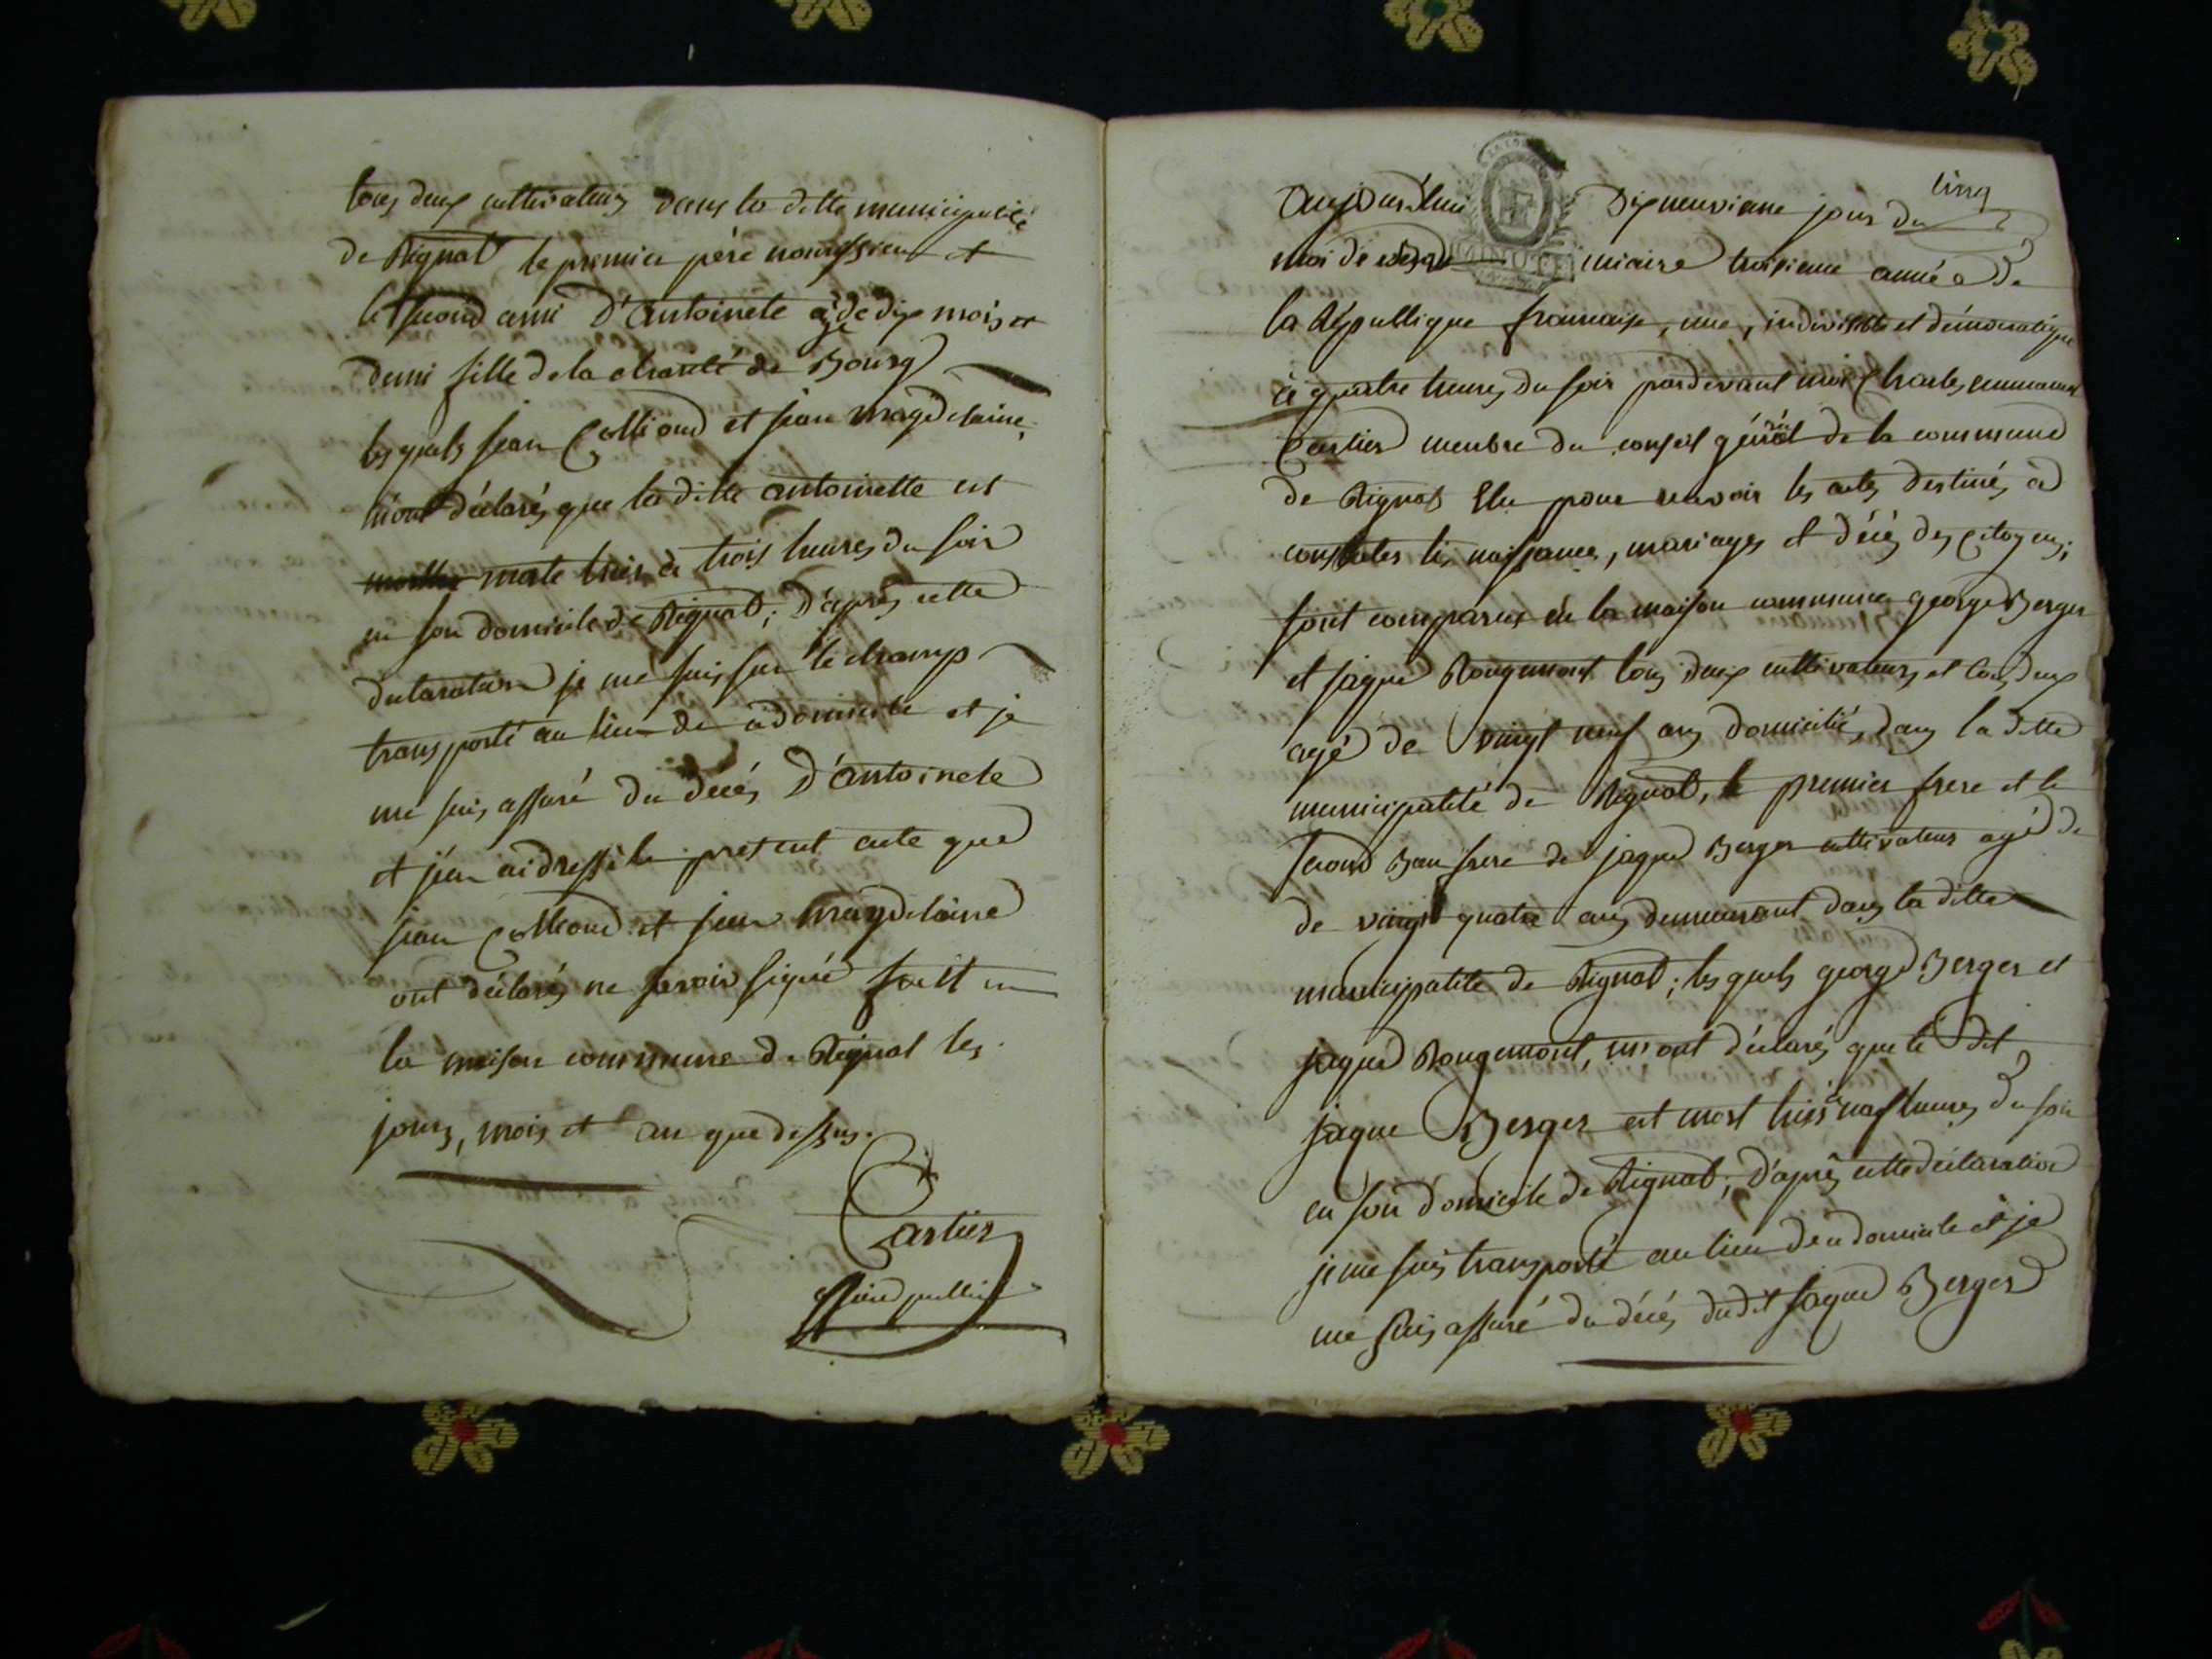 tous deux cultivateurs dans la ditte municipalité
de Rignat le premier père nourissieur et
le second ami d'antoinete agé de dix mois et
demi fille de la charité de Bourg
lesquels jean Collioud et jean magdelaine,
m'ont déclarés que la ditte antoinette est
morte hier à trois heures du soir
en son domicile de Rignat; d'après cette
déclaration je me suis sur le champ
transporté au lieu de ce domicile et je
me suis assuré du décés d'antoinete
et j'en ai dressé le present acte que
jean Collioud et jean magdelaine
ont déclarés ne savoir signé fait en
la maison commune de Rignat les
jours, mois et an que dessus.
Cartier
officier public
cinq
Aujourd'hui dixneuvieme jour du
moi de
MINUTE
miaire troisieme année de
la République francaise, une, indivisible et démocratique
à quatre heures du soir pardevant moi Charles emmanuel
Cartier menbre du conseil général de la commune
de Rignat Elu pour recevoir les actes destinés à
constater les naissances, mariages et décés des citoyens;
sont comparus en la maison commune george Berger
et jaque Rougemont tous deux cultivateurs et tous deux
agé de vingt neuf ans domiciliés dans la ditte
municipalité de Rignat, le premier frere et le
second Beau frere de jaque Berger cultivateur agé de
de vingt quatre ans demeurant dans la ditte
municipalité de Rignat; lesquels george Berger et
jaque Rougemont, m'ont déclarés que le dit
jaque Berger est mort hier à neuf heures du soir
en son domicile de Rignat; d'après cette déclaration
je me suis transporté au lieu de ce domicile et je
me suis assuré du décés dudit jaque Berger